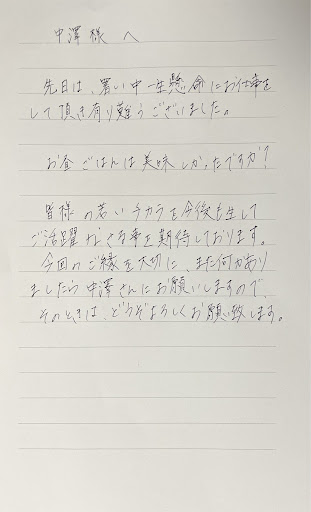 中澤様へ
先日は、暑い中一生懸命にお仕事を
して頂き有り難うございました。
お昼ごはんは美味しかったですか?
皆様の若いチカラを今後も生して
ご活躍なさる事を期待しております。
今回のご縁を大切に、また何かあり
ましたら中澤さんにお願いしますので、
そのときは、どうぞよろしくお願い致します。